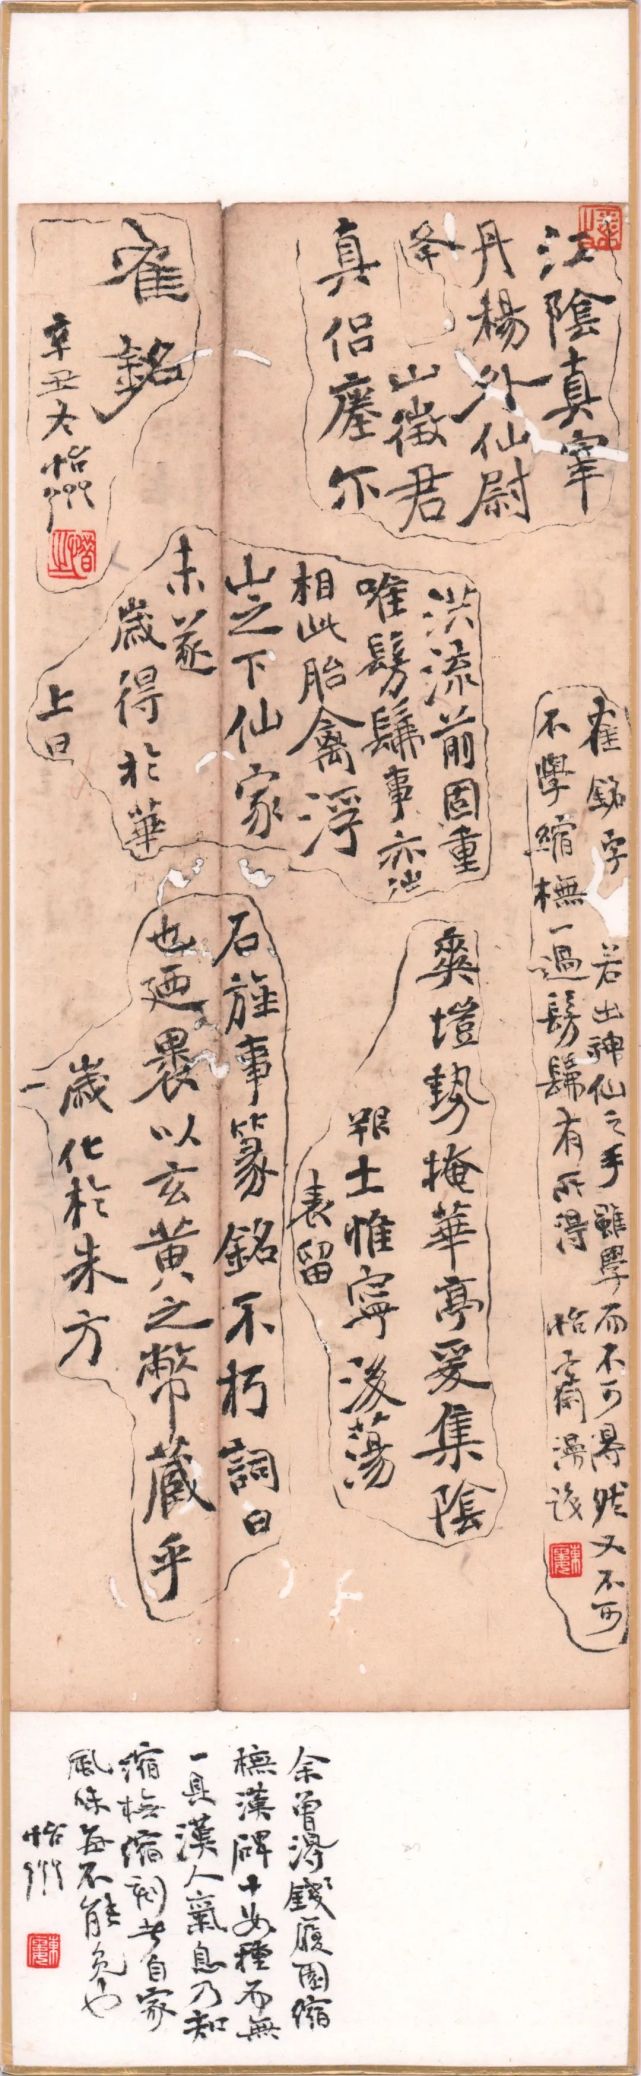 江陰真宰
丹楊外仙尉
夅山徵君
真侶瘞尔
洪流前固重
唯髣髴事亦
相此胎禽浮
山之下仙家
未遂
歲得於華
上皇
爽塏勢掩華亭爰集
陰
土惟寧後蕩
表留
石旌事篆銘不朽詞曰
也廼裹以玄黃之幣藏乎
歲化於朱方
隺銘
辛丑冬怡
隺銘字若出神仙之手雖學而不可得然又不可
不學縮橅一過髣髴有所得怡
余曾得錢履園縮
橅漢碑十數種而無
一具漢人氣息乃知
縮橅縮刻者自家
風味每不能免也
怡